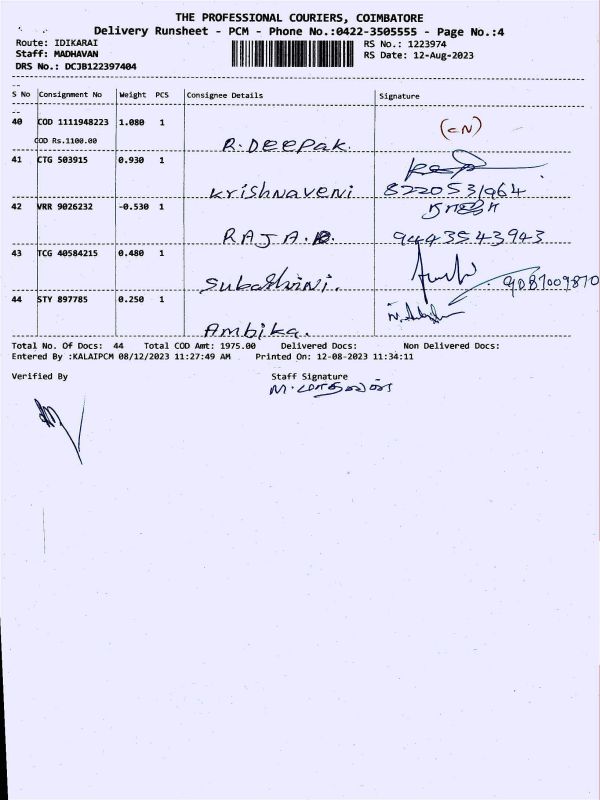 THE PROFESSIONAL COURIERS, COIMBATORE
Delivery Runsheet - PCM - Phone No.:0422-3505555 - Page No.:4
Route: IDIKARAI
RS No.: 1223974
Staff: MADHAVAN
RS Date: 12-Aug-2023
DRS No.: DCJB122397404
S No Consignment No Weight PCS Consignee Details Signature
40 COD 1111948223 1.080 1
COD Rs.1100.00
R.Deepak.
(CN)
41 CTG 503915 0.930 1
Krishnaveni 8220531964
42 VRR 9026232 -0.530 1
RAJA.B. 9443543943
43 TCG 40584215 0.480 1
Subashvini.
44 STY 897785 0.250 1
Ambika.
Total No. Of Docs: 44 Total COD Amt: 1975.00 Delivered Docs: Non Delivered Docs:
Entered By :KALAIPCM 08/12/2023 11:27:49 AM Printed On: 12-08-2023 11:34:11
Verified By Staff Signature